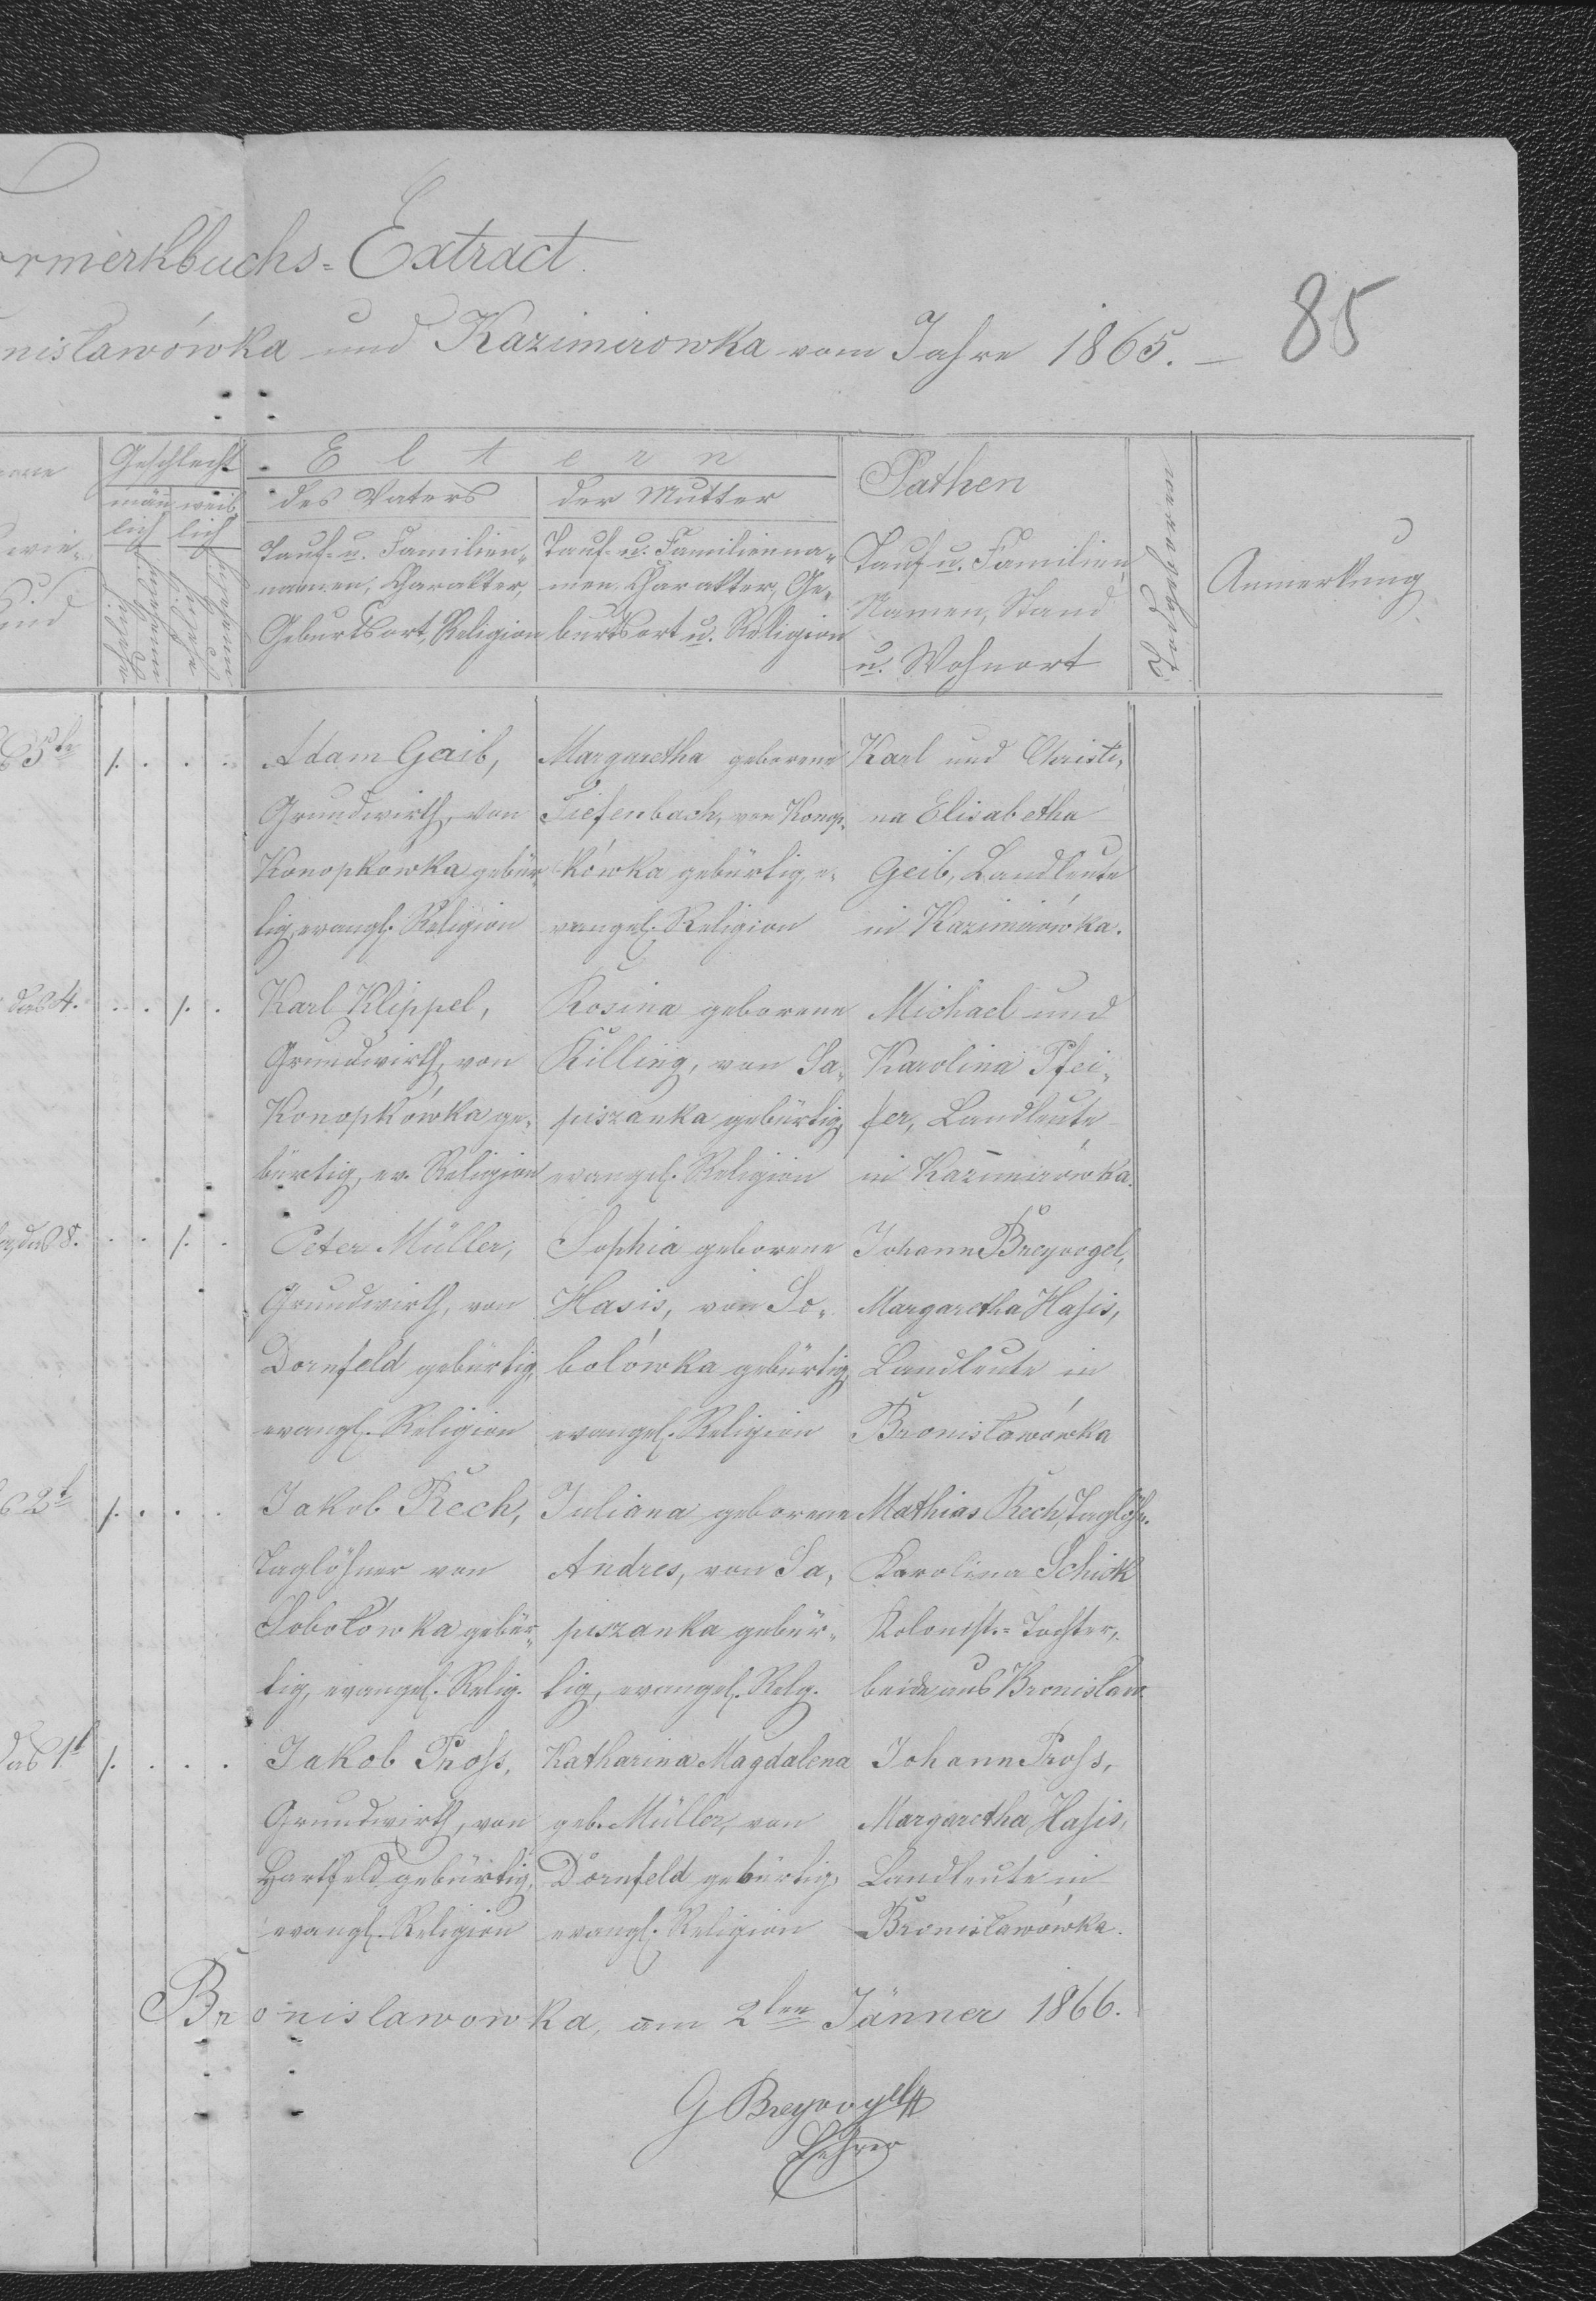 rmerkbuchs=Extract.
nisławówka und Kazimirowka vom Jahre 1865. –
85
Geschlecht
männ
lich
weib
lich
Eltern
des Vaters
der Mutter
Tauf- u. Familien-
namen, Charakter,
Geburtsort, Religion
Tauf- u. Familienna-
men Charakter, Ge-
burtsort u. Religion
Pathen
Tauf u. Familien
Namen, Stand
u. Wohnort
Todtgeboren
Anmerkung
Adam Geib,
Grundwirth, von
Konopkowka gebür-
tig, evangl. Religion
Margaretha geborene
Tiefenbach, von Konop-
kówka gebürtig, e-
vangel. Religion
Karl und Christi-
na Elisabetha
Geib, Landleute
in Kazimirówka.
das 4.
Karl Klippel,
Grundwirth, von
Konopkówka ge-
bürtig, ev. Religion
Rosina geborene
Killing, von Sa-
piszanka gebürtig,
evangel. Religion
Michael und
Karolina Pfei-
fer, Landleute
in Kazimirówka.
das 8.
Peter Müller,
Grundwirth, von
Dornfeld gebürtig,
evangl. Religion
Sophia geborene
Hasis, von So-
bolówka gebürtig,
evangel. Religion
Johann Breyvogel,
Margaretha Hasis,
Landleute in
Bronisławówka
2t
Jakob Rech,
Taglöhner von
Sobolówka gebür-
tig, evangel. Relig.
Juliana geborene
Andres, von Sa-
piszanka gebür-
tig, evangel. Relg.
Mathias Rech, Taglöh.
Karolina Schick
Kolonist.=Tochter,
beide aus Bronislaw
das 1t
Jakob Pross,
Grundwirth, von
Hartfeld gebürtig,
evangl. Religion
Katharina Magdalena
geb. Müller, von
Dornfeld gebürtig,
evangl. Religion
Johann Pross,
Margaretha Hasis,
Landleute in
Bronisławówka.
Bronislawowka, am 2ten Jänner 1866.
G Breyvogel
Lehrer